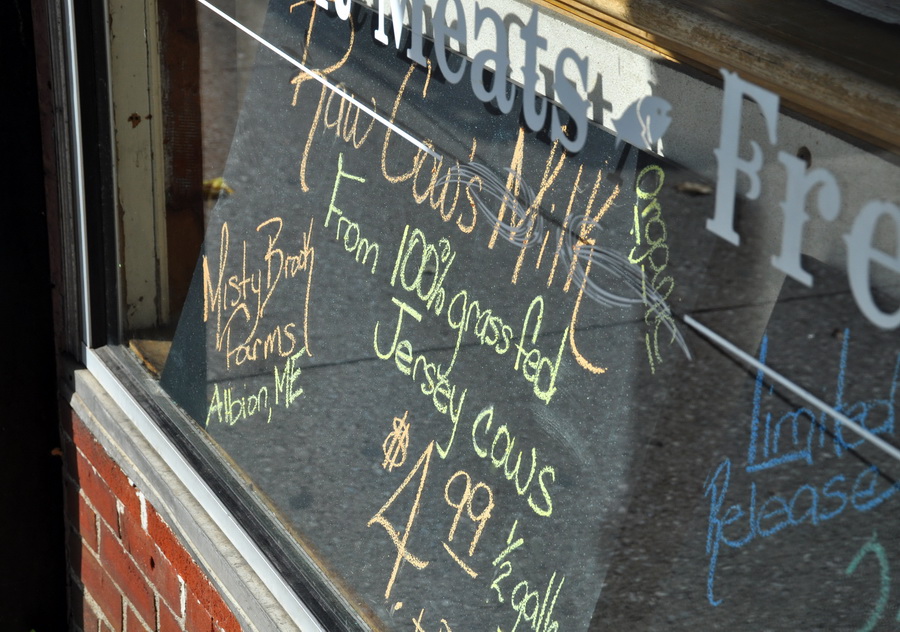 Meats
Fre
Raw Cow's Milk
Organic!!
From 100% grass fed
Jersey cows
$4.99 1/2 gall
Misty Brook
Farms
Albion, ME
Limited
Release